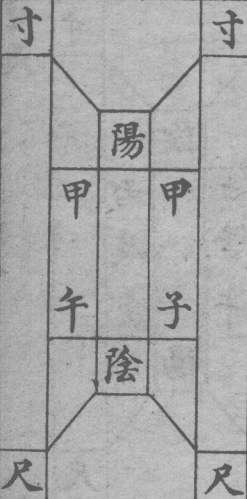 寸 寸
陽
甲子
甲午
陰
尺 尺